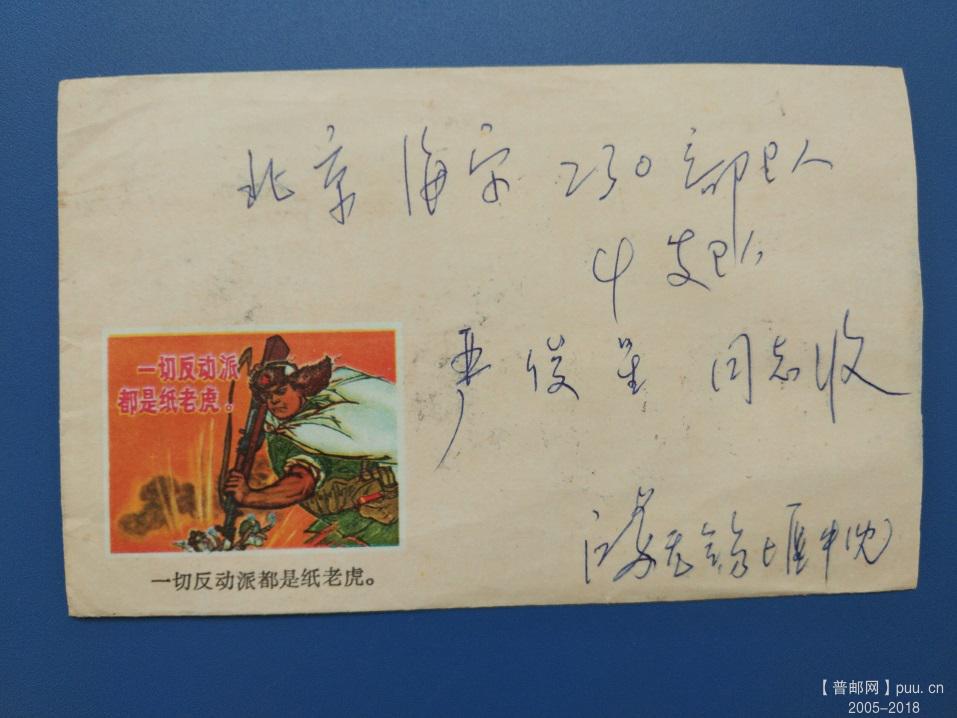 北京海字230部队
4支队
严俊星同志收
江苏无锡上匯中沈
一切反动派
都是纸老虎。
一切反动派都是纸老虎。
【普邮网】puu.cn
2005-2018